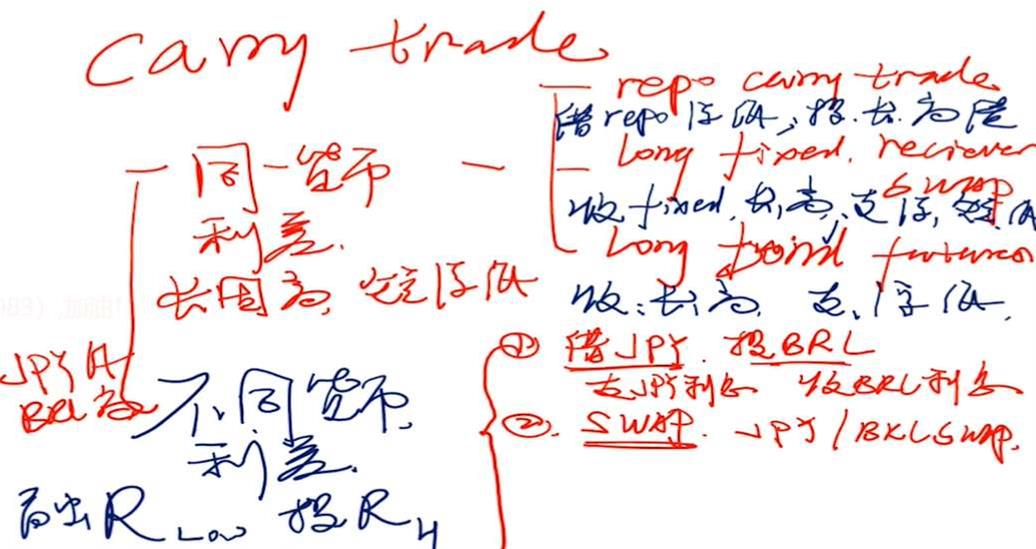 carry trade
— repo carry trade
借 repo 浮低, 投.长.高固
— 同一货币 —
— Long fixed. reciever swap
利差.
收 fixed. 长,高, 支浮, 短低
Long bond futures
长固高, 短浮低
收:长高 支、浮低.
JPY低
BRL高
① 借JPY. 投BRL
支JPY利息 收BRL利息
不同货币.
② SWAP. JPY/BRL swap.
利差.
R Low 投 R H